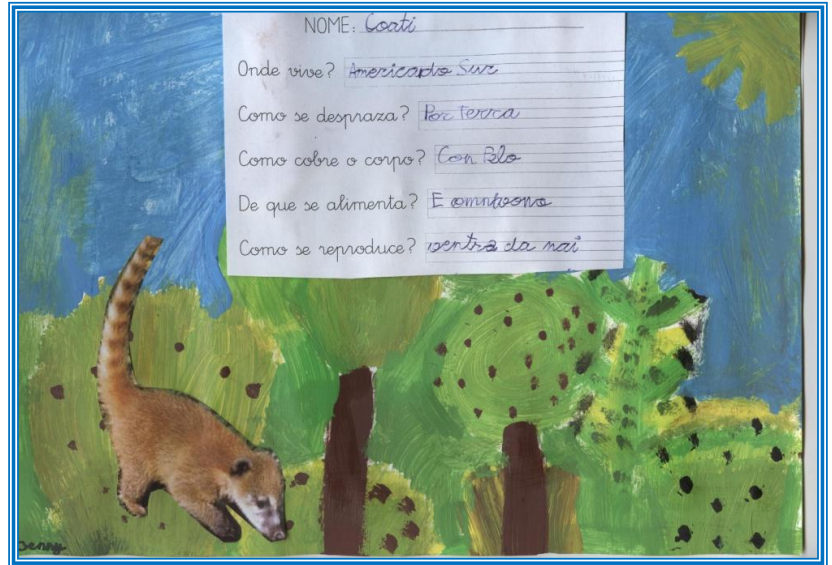 NOME: Coati
Onde vive? America do Sur
Como se despraza? Por Terra
Como cobre o corpo? Con Pelo
De que se alimenta? E omnívono
Como se reproduce? ventre da nai
Jenny